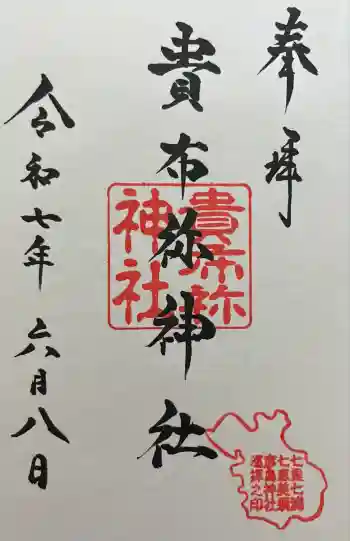 奉拝
貴布祢神社
貴布祢
神社
令和七年六月八日